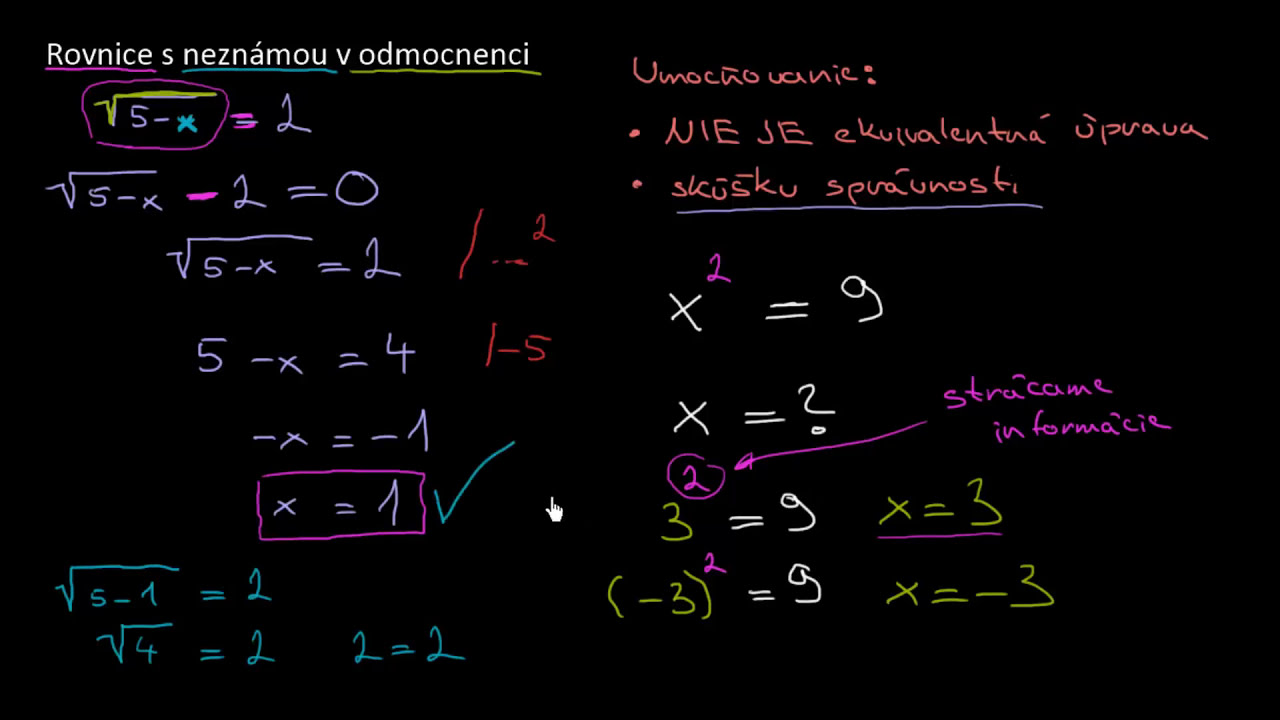 Rovnice s neznámou v odmocnenci
√5-x = 2
√5-x - 2 = 0
√5-x = 2 /...²
5 - x = 4 /-5
-x = -1
x = 1 ✓
√5-1 = 2
√4 = 2 2 = 2
Umocňovanie:
• NIE JE ekvivalentná úprava
• skúšku správnosti
x² = 9
x = ?
strácame
informácie
3² = 9 x = 3
(-3)² = 9 x = -3